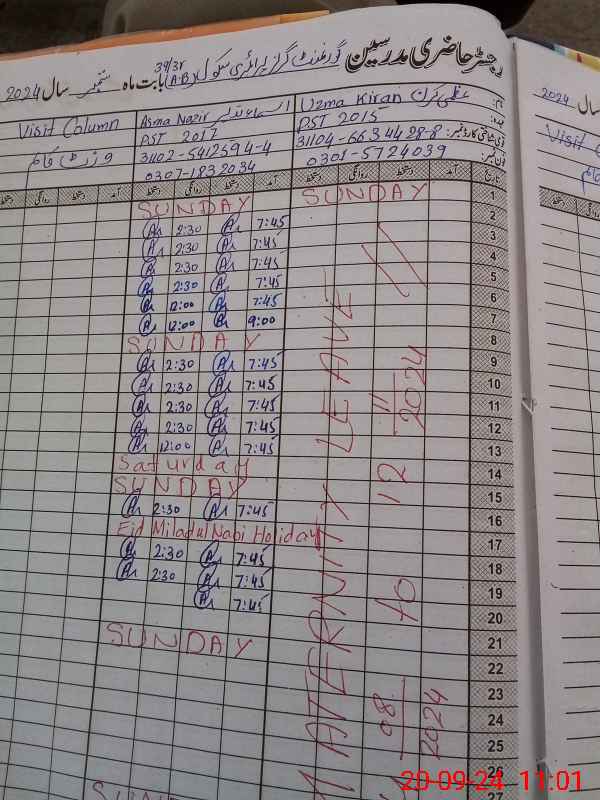 رجسٹر حاضری مدرسین گورنمنٹ گرلز پرائمری سکول 39/3R (A.B) بابت ماہ ستمبر سال 2024
نام: عظمیٰ کرن Uzma Kiran
اسماء نذیر Asma Nazir
Visit Column
عہدہ: PST 2015
PST 2017
وزٹ کالم
شناختی کارڈ نمبر: 31104-6634428-8
31102-5412594-4
فون نمبر: 0301-5724039
0307-1832034
تاریخ آمد دستخط روانگی دستخط آمد دستخط روانگی دستخط آمد دستخط روانگی دستخط
1 SUNDAY SUNDAY
2 7:45 2:30
3 7:45 2:30
4 7:45 2:30
5 7:45 2:30
6 7:45 12:00
7 9:00 12:00
8 SUNDAY
9 7:45 2:30
10 7:45 2:30
11 7:45 2:30
12 7:45 2:30
13 7:45 12:00
14 Saturday
15 SUNDAY
16 7:45 2:30
17 Eid Milad ul Nabi Holiday
18 7:45 2:30
19 7:45 2:30
20 7:45
21
22 SUNDAY
23
24
25
26
27
MATERNITY LEAVE
08 2024 to 12 11 2024
SUN
سال 2024
Visit C
20-09-24 11:01